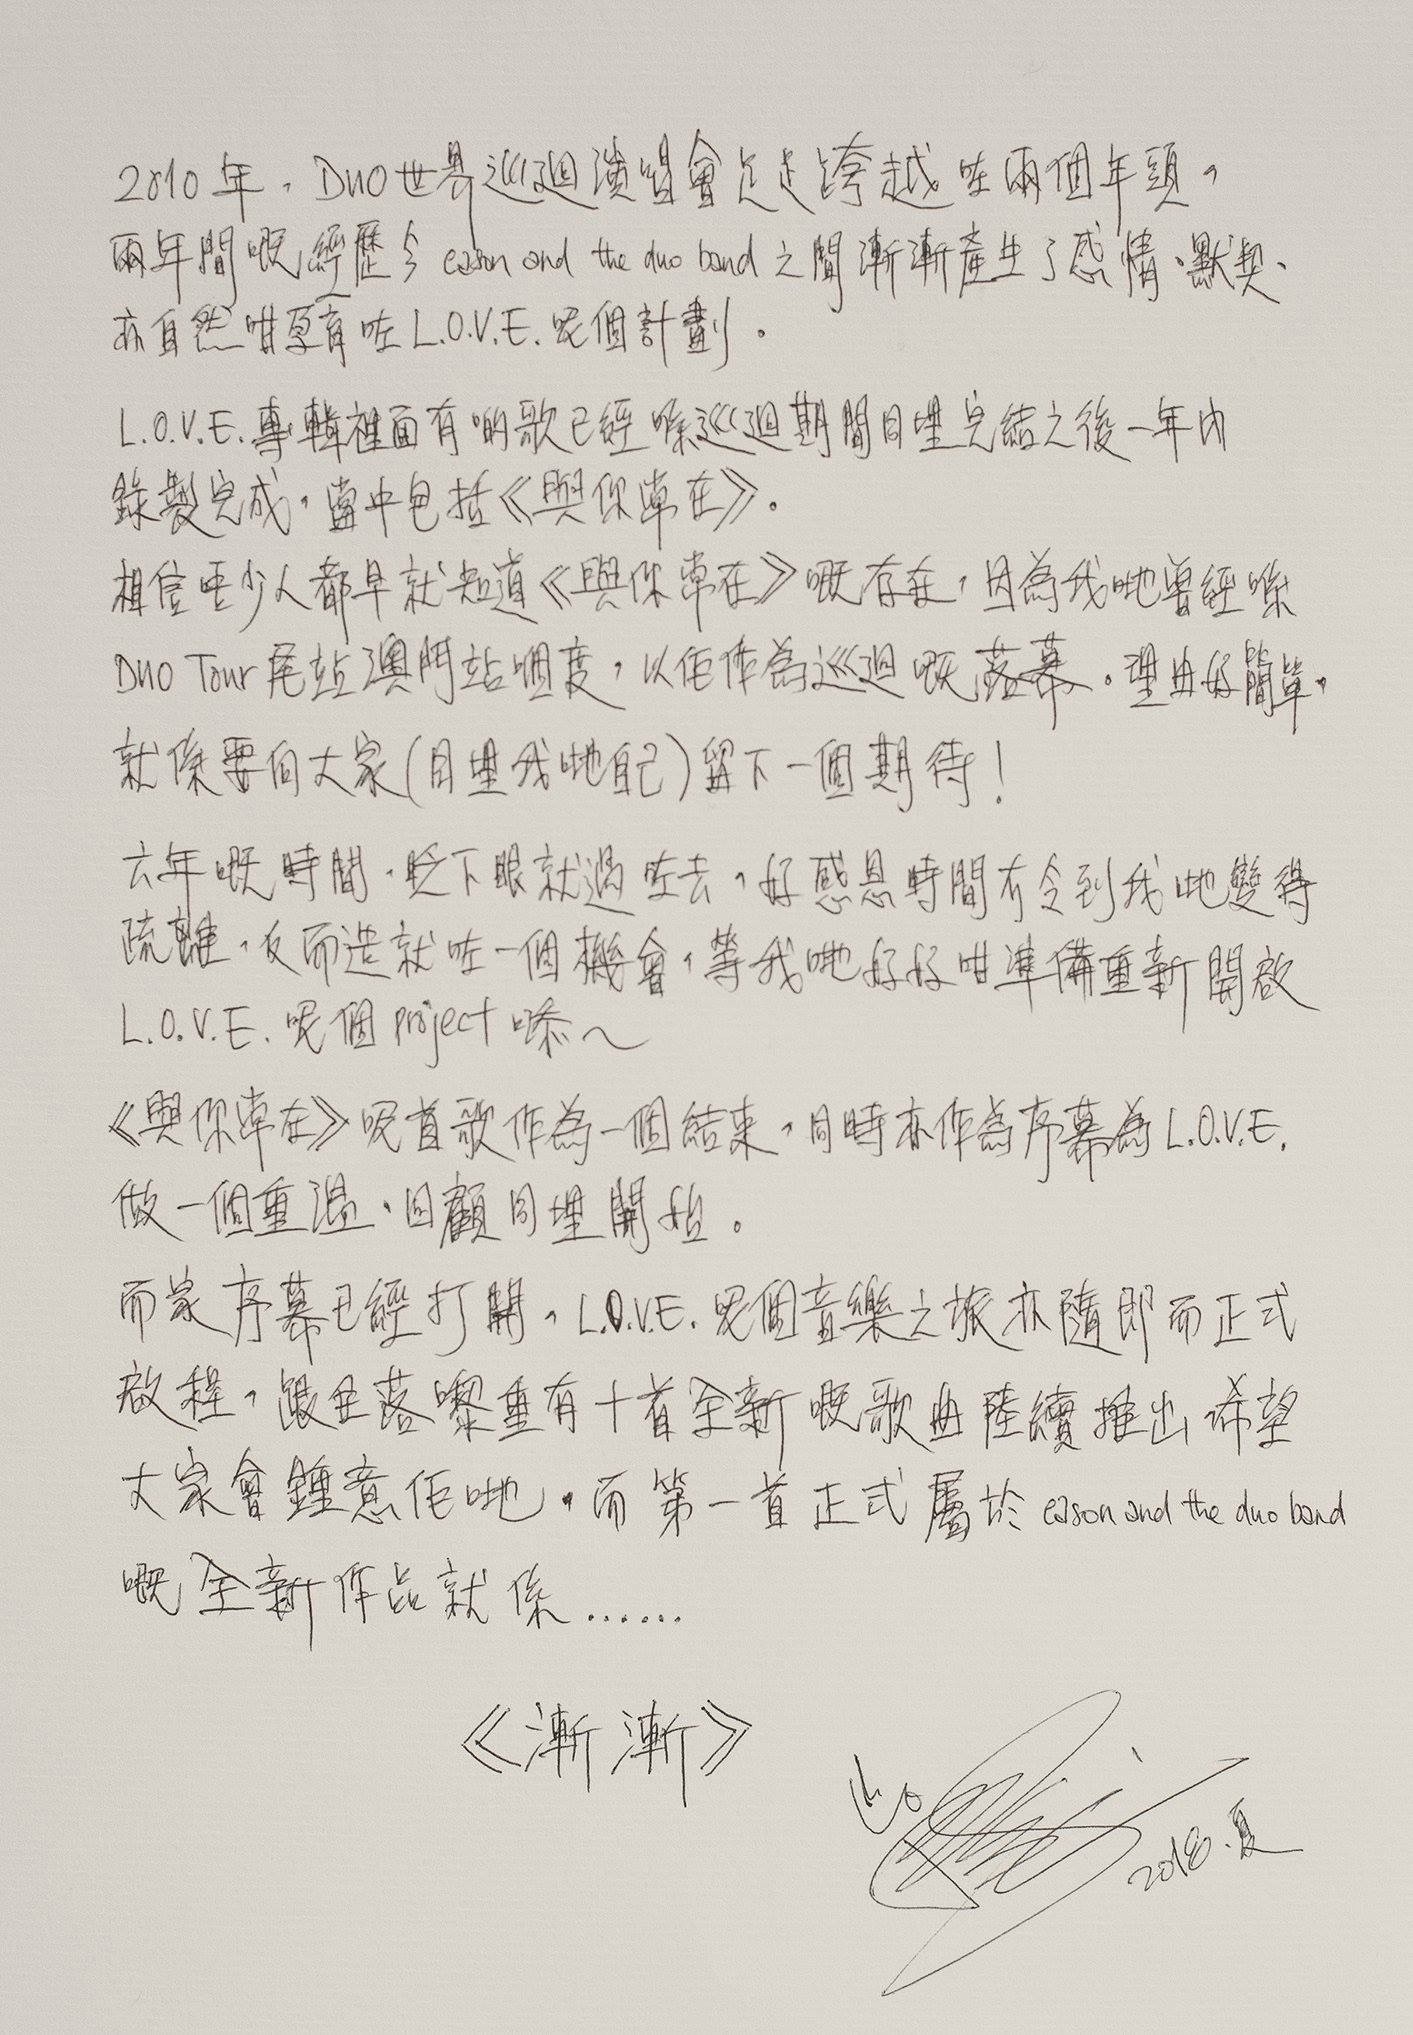 2010年，DUO世界巡迴演唱會足足跨越咗兩個年頭，
兩年間嘅經歷令 eason and the duo band 之間漸漸產生了感情、默契、
亦自然咁孕育咗L.O.V.E.呢個計劃。
L.O.V.E.專輯裡面有啲歌已經喺巡迴期間同埋完結之後一年內
錄製完成，當中包括《與你常在》。
相信唔少人都早就知道《與你常在》嘅存在，因為我哋曾經喺
DUO Tour尾站澳門站嗰度，以佢作為巡迴嘅落幕。理由好簡單，
就係要向大家(同埋我哋自己)留下一個期待！
六年嘅時間，眨下眼就過咗去，好感恩時間冇令到我哋變得
疏離，反而造就咗一個機會，等我哋好好咁準備重新開啟
L.O.V.E.呢個project㖭～
《與你常在》呢首歌作為一個結束，同時亦作為序幕為L.O.V.E.
做一個重溫、回顧同埋開始。
而家序幕已經打開，L.O.V.E.呢個音樂之旅亦隨即而正式
啟程，跟住落嚟重有十首全新嘅歌曲陸續推出希望
大家會鍾意佢哋。而第一首正式屬於 eason and the duo band
嘅全新作品就係……
《漸漸》
2018.夏